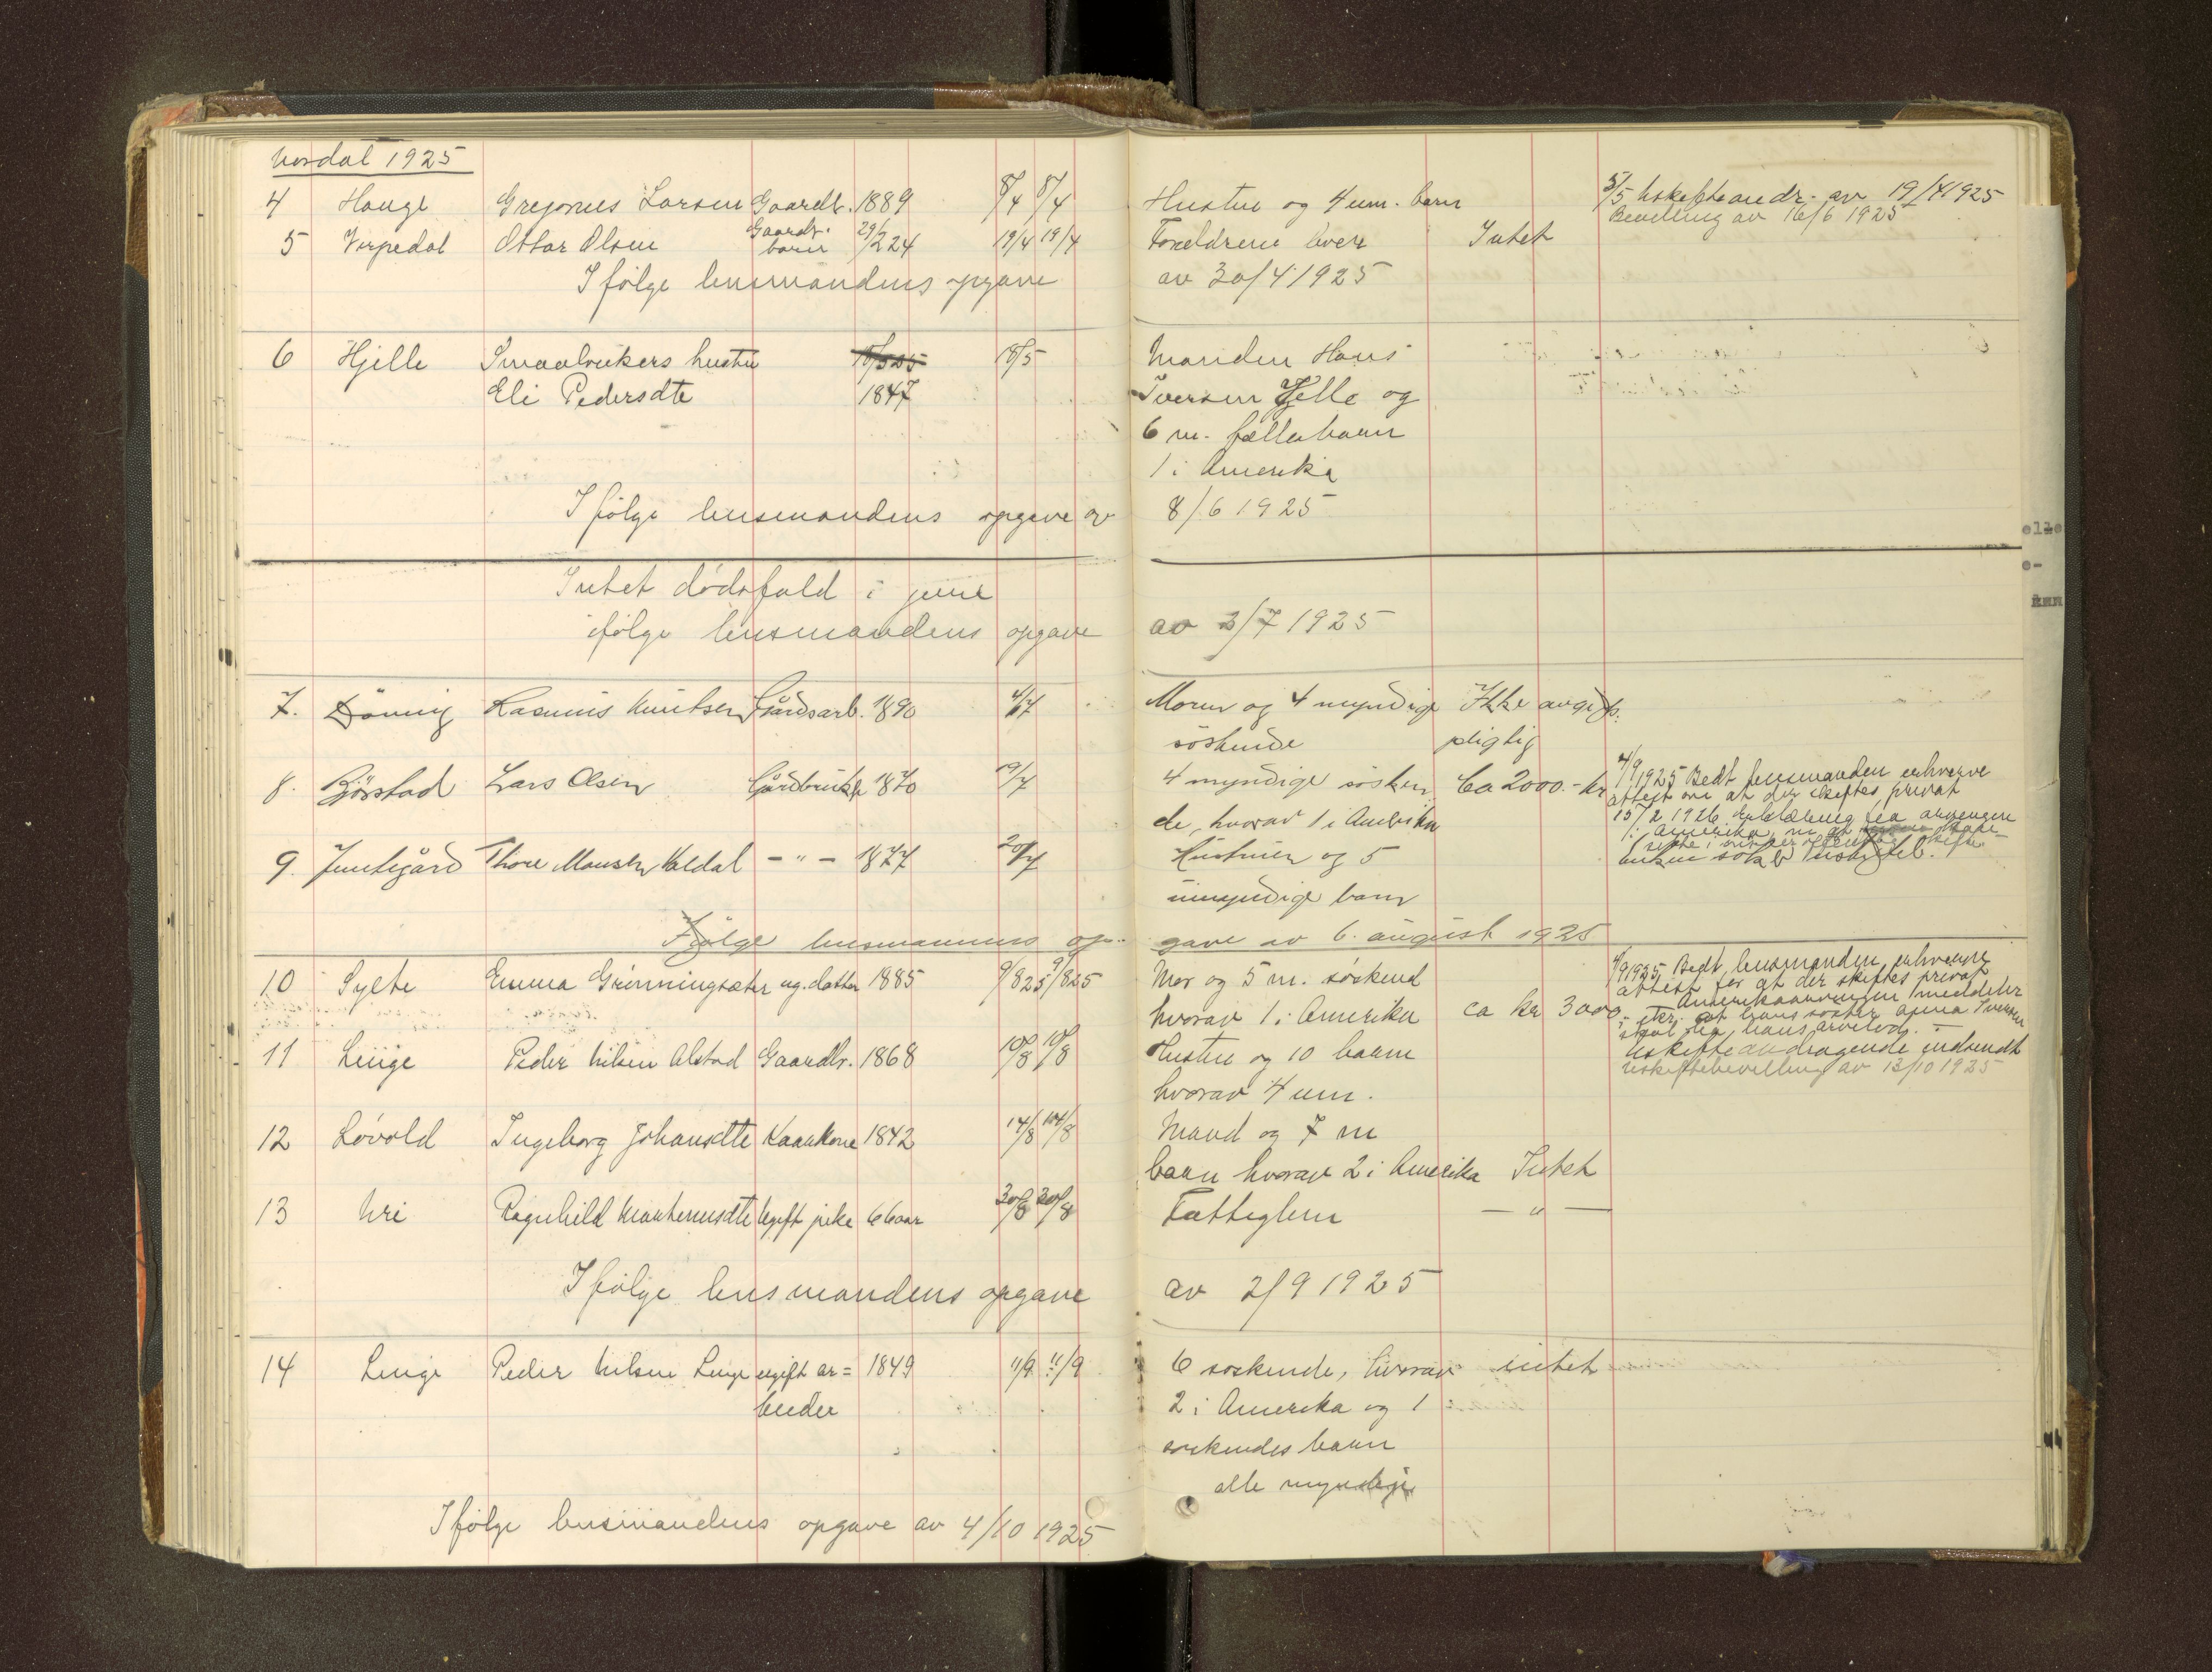 Nordal 1925
4 Hauge Gregorius Larsen Gaardbr. 1889 8/4 8/4 Hustru og 4 um. barn 5/5 Uskifteandr. av 19/4 1925
Bevilling av 16/6 1925
5 Verpedal Ottar Olsen Gaardbr. barn 29/2 24 19/4 19/4 Foreldrene lever Intet
Ifølge lensmandens opgave av 30/4 1925
6 Hjelle Smaabrukers hustru 18/5 25 18/5 Manden Hans
Eli Pedersdte 1847 Iversen Hjelle og
6 m. fællesbarn
1 i Amerika
Ifølge lensmandens opgave av 8/6 1925
Intet dødsfald i juni
ifølge lensmandens opgave av 2/7 1925
7. Døving Rasmus Knutsen Gårdsarb. 1890 4/7 Moren og 4 myndige Ikke avgifs-
søskende pligtig
8. Bjørstad Lars Olsen Gårdbruker 1870 19/7 4 myndige søsken Ca 2000.- kr
4/9 1925 Bedt lensmanden erhverve
attest om at der skiftes privat
de, hvorav 1 i Amerika
15/2 1926 erklæring fra arvingen
i Amerika
9. Jamtegård Thore Monsen Valdal - " - 1877 20/7 Hustruen og 5
enken søkt uskifte.
umyndige barn
Ifølge lensmannens opgave av 6. august 1925
10 Sylte Emma Grønningsæter ug. datter 1885 9/8 25 9/8 25 Mor og 5 m. søskend
4/9 1925 Bedt lensmanden erhverve
attest for at der skiftes privat
hvorav 1 i Amerika ca kr 3000.-
Amerikaarvingen meddeler
skr. at hans søster Anna Iversen
skal ha hans arvelod. -
11 Linge Peder Nilsen Alstad Gaardbr. 1868 10/8 10/8 Hustru og 10 barn
Uskifteandragende indsendt
Uskiftebevilling av 13/10 1925
hvorav 4 um.
12 Løvold Ingeborg Johansdtte Kaarkone 1842 14/8 14/8 Mand og 7 m
barn hvorav 2 i Amerika Intet
13 Uri Ragnhild Martinusdtte Ugift pike 66 aar 30/8 30/8 Fattiglem - " -
Ifølge lensmandens opgave av 2/9 1925
14 Linge Peder Nilsen Linge ugift ar= 1849 11/9 11/9 6 søskende, hvorav intet
beider 2 i Amerika og 1
søskendes barn
alle myndige
Ifølge lensmandens opgave av 4/10 1925
elle
e-